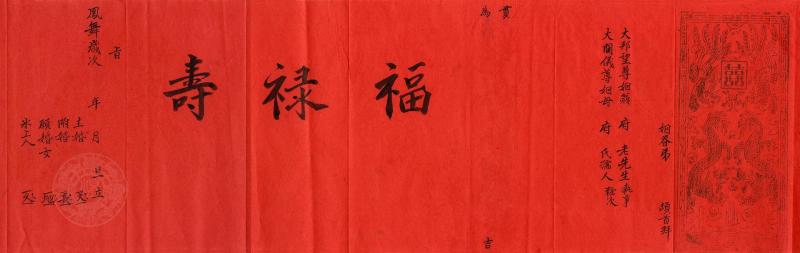 囍
姻眷弟 頓首拜
大邦望尊姻翁 府 老先生執事
大閫儀尊姻母 府 氏孺人 粧次
貫
為
吉
福
祿
壽
吉
鳳舞歲次 年 月 旦立
主婚
附婚
願婚女
氷上人